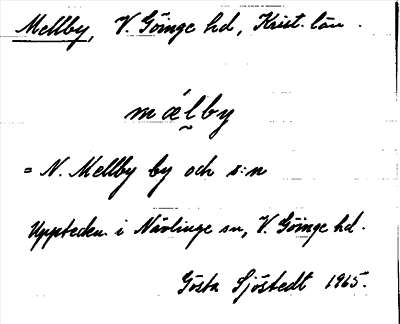 Mellby, V. Göinge hd, Krist. län.
mǽl̯by
= N. Mellby by och s:n
Uppteckn. i Nävlinge sn, V. Göinge hd.
Gösta Sjöstedt 1965.